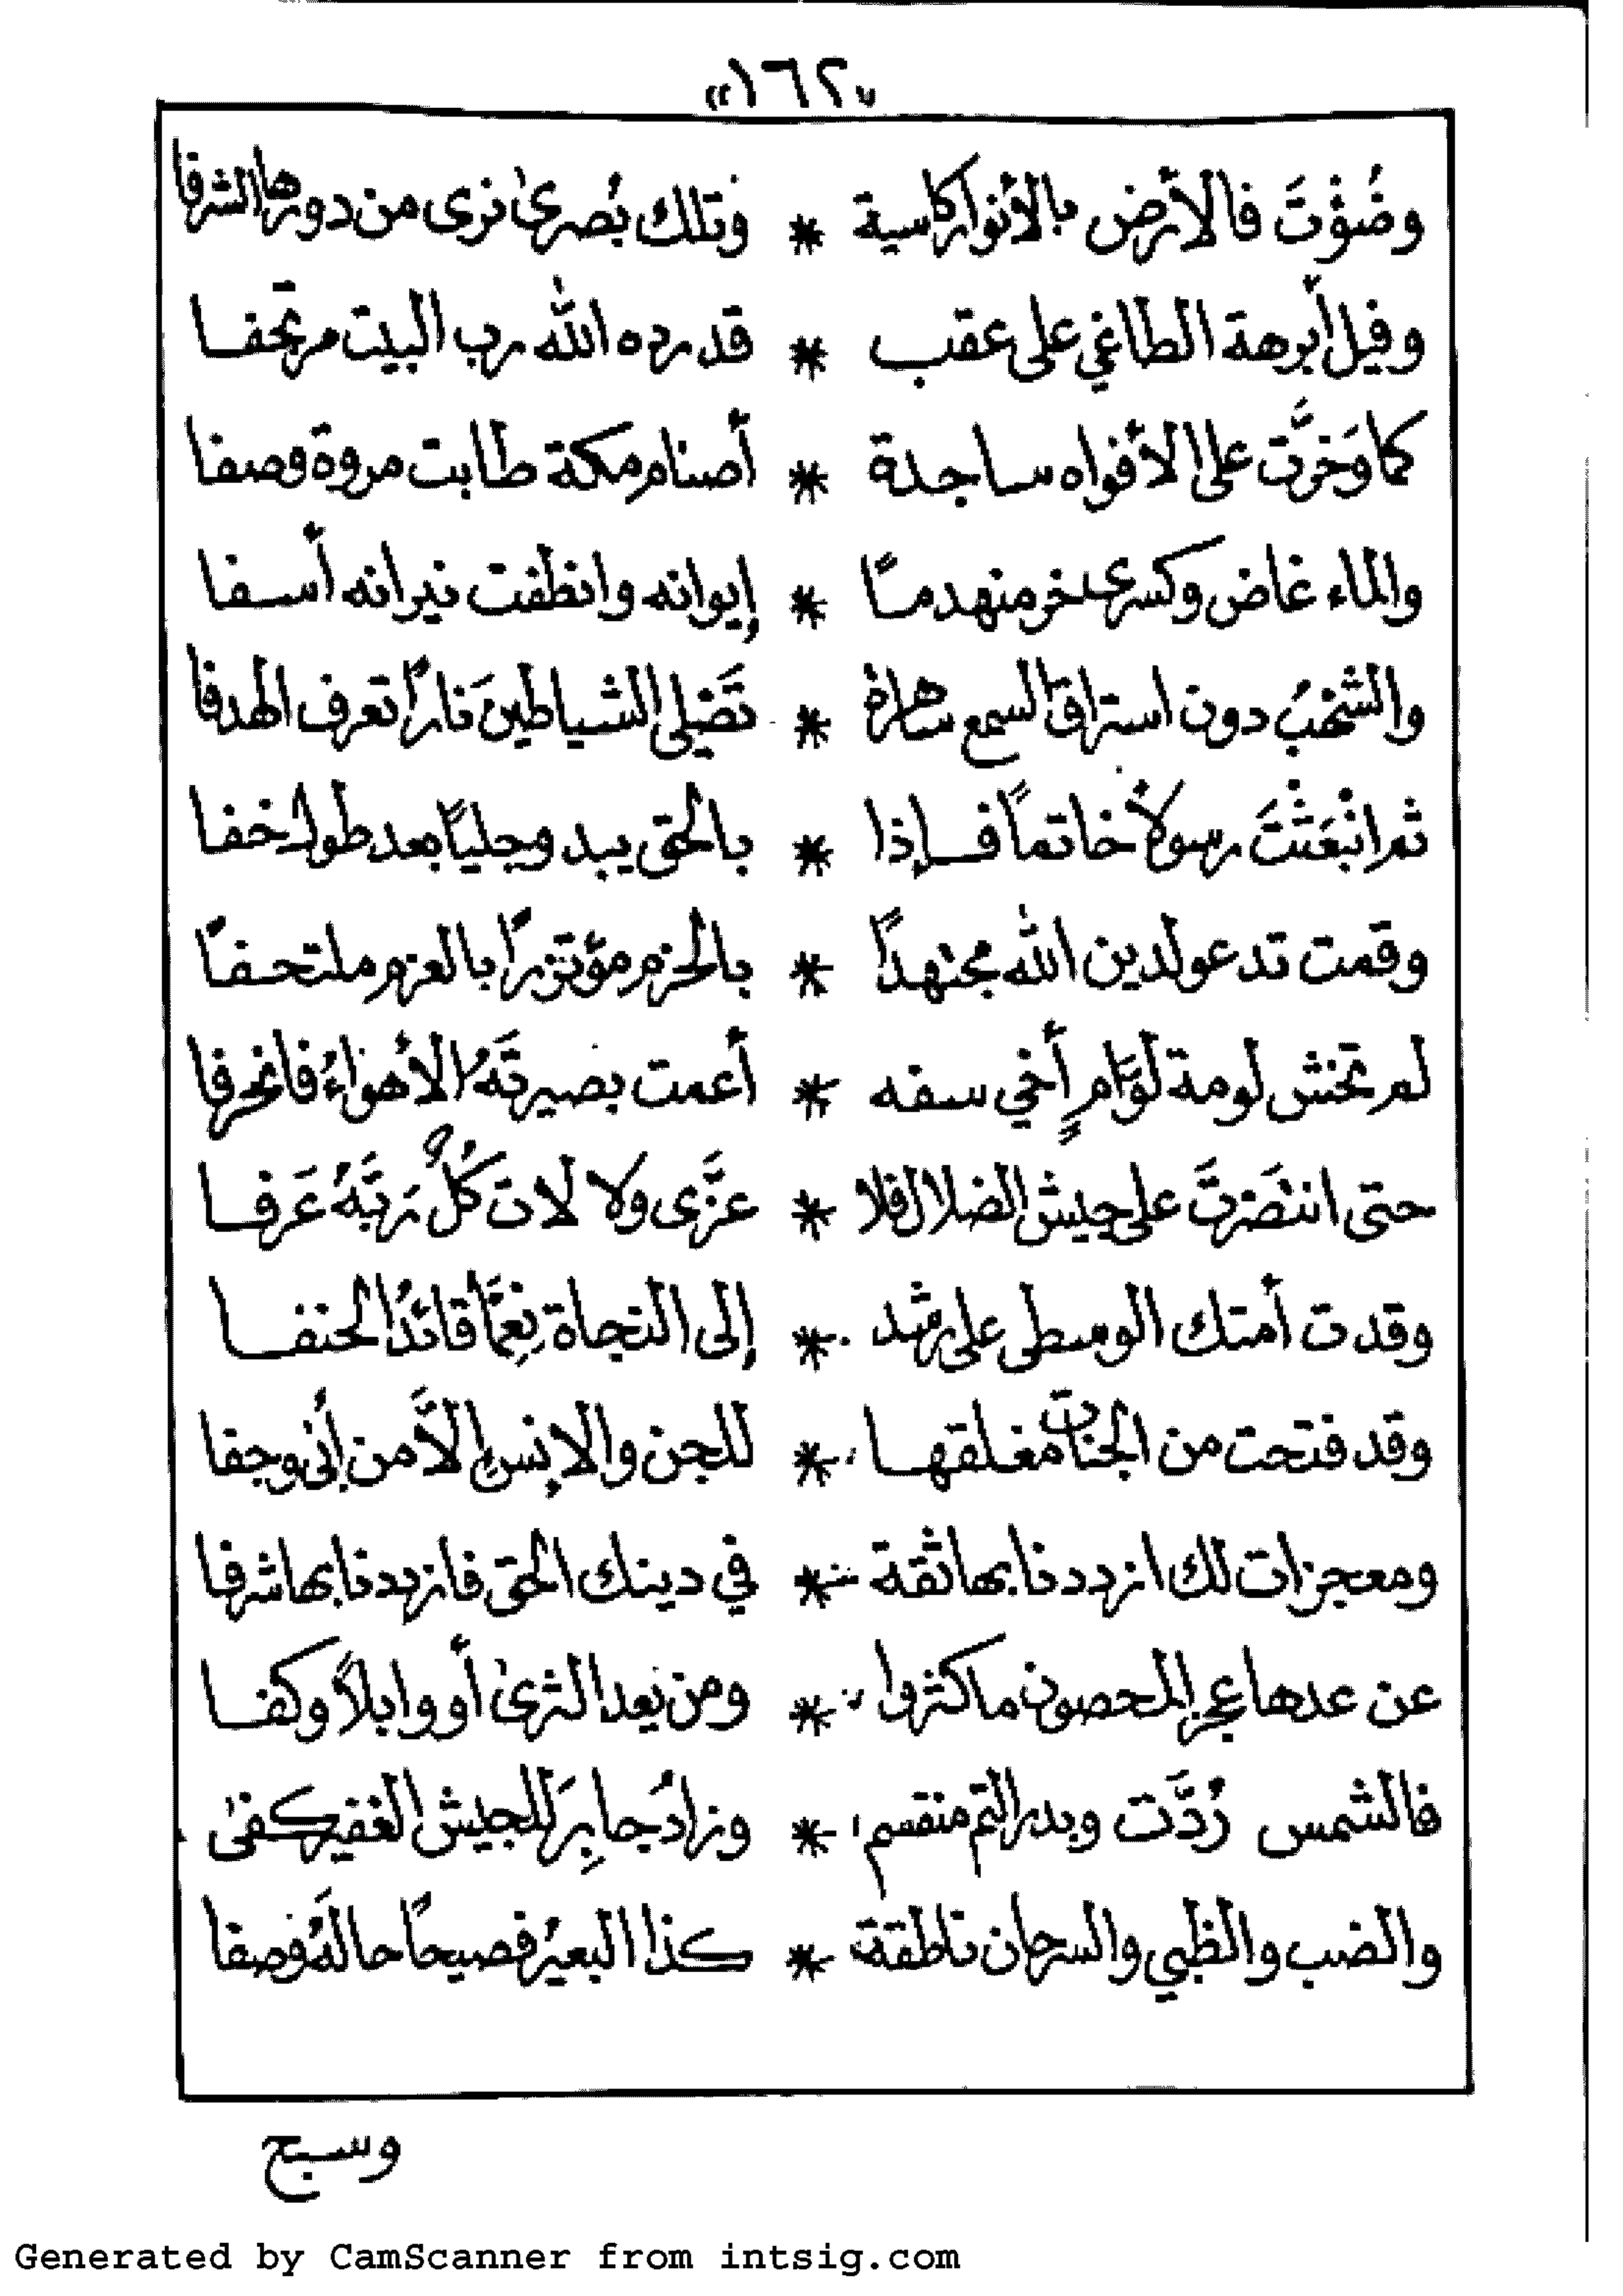 «١٦٢»
وضُؤْتَ فالأرض بالأنوار كاسية * وتلك بُصرىٰ نرى من دورها الشرفا
وفيل أبرهة الطاغي على عقب * قد رده الله رب البيت مرتجفا
كما وَخرَّت على الأفواه ساجدة * أصنام مكة طابت مروة وصفا
والماء غاض وكسرى خر منهدمًا * إيوانه وانطفت نيرانه أسفا
والشهْبُ دون استراق السمع ساهرة * تَصْلي الشياطينَ نارًا تعرف الهدفا
ثم انْبَعَثْتَ رسولاً خاتماً فإذا * بالحق يبدو جلياً بعد طول خفا
وقمت تدعو لدين الله مجتهدًا * بالحزم مؤتزرًا بالعزم ملتحفًا
لم تخش لومة لوَّامٍ أخي سفه * أعمت بصيرتَهُ الأهواءُ فانحرفا
حتى انتصَرْتَ على جيش الضلال فلا * عزَّى ولا لات كُلٌّ رَبَّهُ عَرَفا
وقدت أمتك الوسطى على رشد * إلى النجاة نِعِمَّا قائدُ الحنفا
وقد فتحت من الجنات مغلقها * للجن والإنس إلاَّ من أبى وجفا
ومعجزات لك ازددنا بها ثقة * في دينك الحق فازددنا بها شرفا
عن عدها عجز المحصون ما كثروا * ومن يعد الثرىٰ أو وابلاً وكفا
فالشمس رُدَّت وبدر التم منقسم * وزادُ جابِرَ للجيش الغفير كفىٰ
والضب والظبي والسرحان ناطقة * كذا البعيرُ فصيحاً حالَهُ وصفا
وسبح
Generated by CamScanner from intsig.com